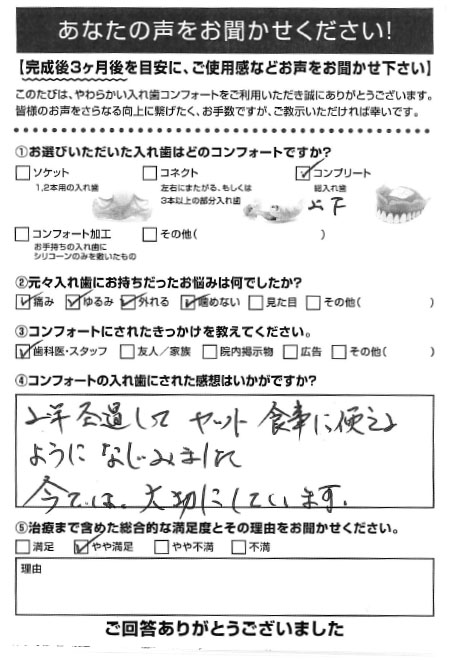 あなたの声をお聞かせください!
【完成後3ヶ月後を目安に、ご使用感などお声をお聞かせ下さい】
このたびは、やわらかい入れ歯コンフォートをご利用いただき誠にありがとうございます。
皆様のお声をさらなる向上に繋げたく、お手数ですが、ご教示いただければ幸いです。
①お選びいただいた入れ歯はどのコンフォートですか?
□ソケット □コネクト ☑コンプリート
1,2本用の入れ歯 左右にまたがる、もしくは 総入れ歯
3本以上の部分入れ歯 上下
□コンフォート加工 □その他( )
お手持ちの入れ歯に
シリコーンのみを敷いたもの
②元々入れ歯にお持ちだったお悩みは何でしたか?
☑痛み ☑ゆるみ ☑外れる ☑噛めない □見た目 □その他( )
③コンフォートにされたきっかけを教えてください。
☑歯科医・スタッフ □友人/家族 □院内掲示物 □広告 □その他( )
④コンフォートの入れ歯にされた感想はいかがですか?
年 過して ヤット 食事に使える
ように なじみました
今では、大切にしています.
⑤治療まで含めた総合的な満足度とその理由をお聞かせください。
□満足 ☑やや満足 □やや不満 □不満
理由
ご回答ありがとうございました